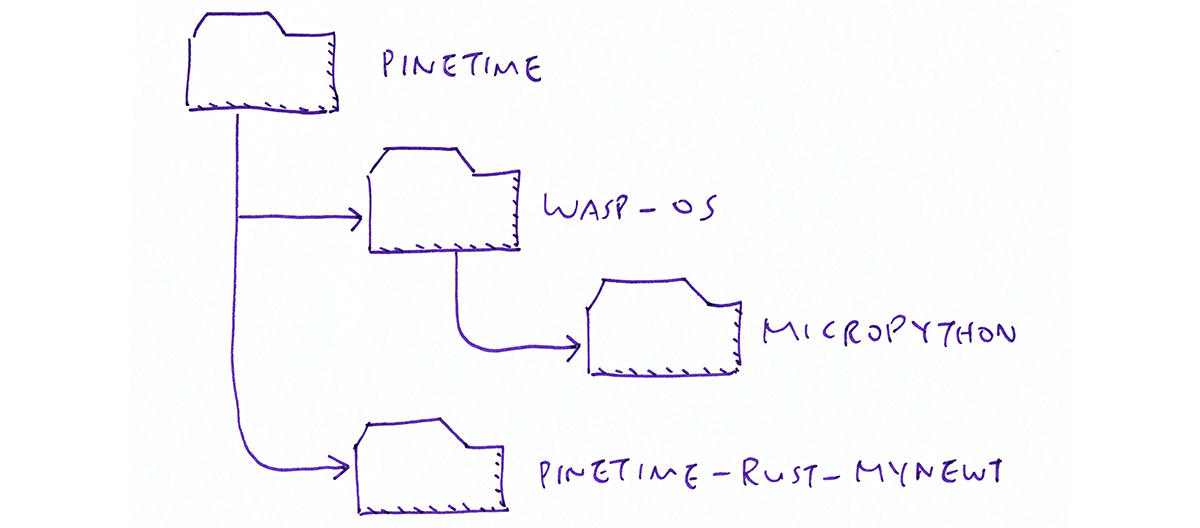 PINETIME
WASP-OS
MICROPYTHON
PINETIME-RUST-MYNEWT